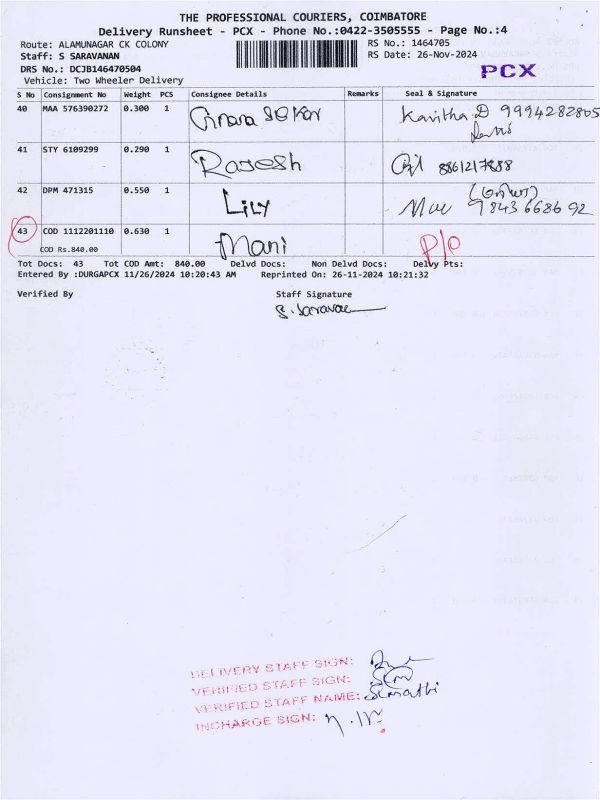 THE PROFESSIONAL COURIERS, COIMBATORE
Delivery Runsheet - PCX - Phone No.:0422-3505555 - Page No.:4
Route: ALAMUNAGAR CK COLONY
RS No.: 1464705
Staff: S SARAVANAN
RS Date: 26-Nov-2024
DRS No.: DCJB146470504
PCX
Vehicle: Two Wheeler Delivery
S No Consignment No Weight PCS Consignee Details Remarks Seal & Signature
40 MAA 576390272 0.300 1 Kavitha.D 9994282805
41 STY 6109299 0.290 1 Rajesh 8861217888
42 DPM 471315 0.550 1 Lily 9843668692
43 COD 1112201110 0.630 1 Mani P/O
COD Rs.840.00
Tot Docs: 43 Tot COD Amt: 840.00 Delvd Docs: Non Delvd Docs: Delvy Pts:
Entered By :DURGAPCX 11/26/2024 10:20:43 AM Reprinted On: 26-11-2024 10:21:32
Verified By Staff Signature
DELIVERY STAFF SIGN:
VERIFIED STAFF SIGN:
VERIFIED STAFF NAME:
INCHARGE SIGN: